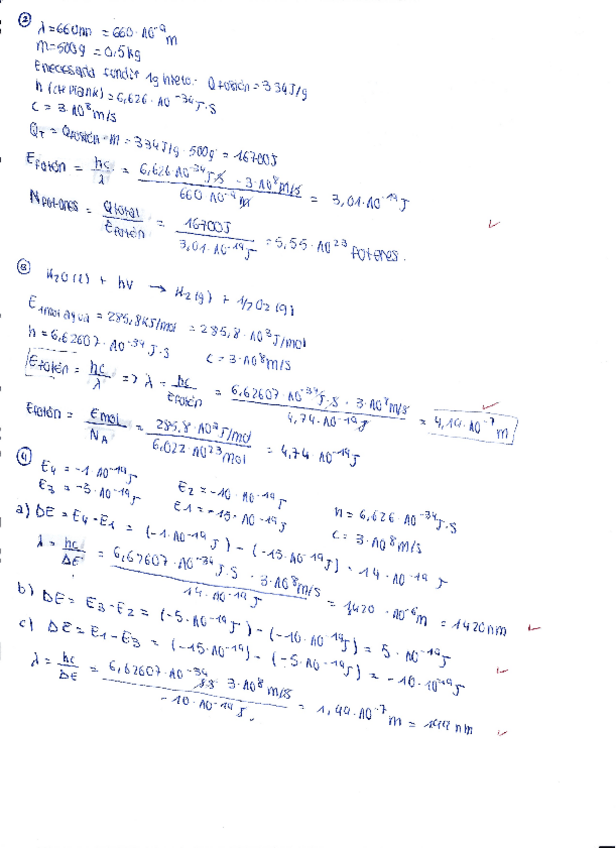 ② λ = 660nm = 660·10⁻⁹ m
m = 500g = 0,5kg
Enecesaria fundir 1g hielo: Qfusión = 334J/g
h (cte Plank) = 6,626·10⁻³⁴ J·S
c = 3·10⁸ m/s
QT = Qfusión·m = 334J/g · 500g = 16700J
Efotón = hc/λ = 6,626·10⁻³⁴ J·S · 3·10⁸ m/s / 660·10⁻⁹ m = 3,01·10⁻¹⁹ J
Nfotones = Qtotal/Efotón = 16700J / 3,01·10⁻¹⁹ J = 5,55·10²³ fotones.
③ H₂O(l) + hν → H₂(g) + 1/2O₂(g)
E1mol agua = 285,8kJ/mol = 285,8·10³ J/mol
h = 6,62607·10⁻³⁴ J·S c = 3·10⁸ m/s
Efotón = hc/λ => λ = hc/Efotón = 6,62607·10⁻³⁴ J·S · 3·10⁸ m/s / 4,74·10⁻¹⁹ J = 4,19·10⁻⁷ m
Efotón = Emol/NA = 285,8·10³ J/mol / 6,022·10²³ mol = 4,74·10⁻¹⁹ J
④ E4 = -1·10⁻¹⁹ J E2 = -10·10⁻¹⁹ J h = 6,626·10⁻³⁴ J·S
E3 = -5·10⁻¹⁹ J E1 = -15·10⁻¹⁹ J c = 3·10⁸ m/s
a) ΔE = E4 - E1 = (-1·10⁻¹⁹ J) - (-15·10⁻¹⁹ J) = 14·10⁻¹⁹ J
λ = hc/ΔE = 6,62607·10⁻³⁴ J·S · 3·10⁸ m/s / 14·10⁻¹⁹ J = 1,420·10⁻⁶ m = 1420nm
b) ΔE = E3 - E2 = (-5·10⁻¹⁹ J) - (-10·10⁻¹⁹ J) = 5·10⁻¹⁹ J
c) ΔE = E1 - E3 = (-15·10⁻¹⁹) - (-5·10⁻¹⁹ J) = -10·10⁻¹⁹ J
λ = hc/ΔE = 6,62607·10⁻³⁴ J·S · 3·10⁸ m/s / -10·10⁻¹⁹ J. = 1,99·10⁻⁷ m = 199 nm